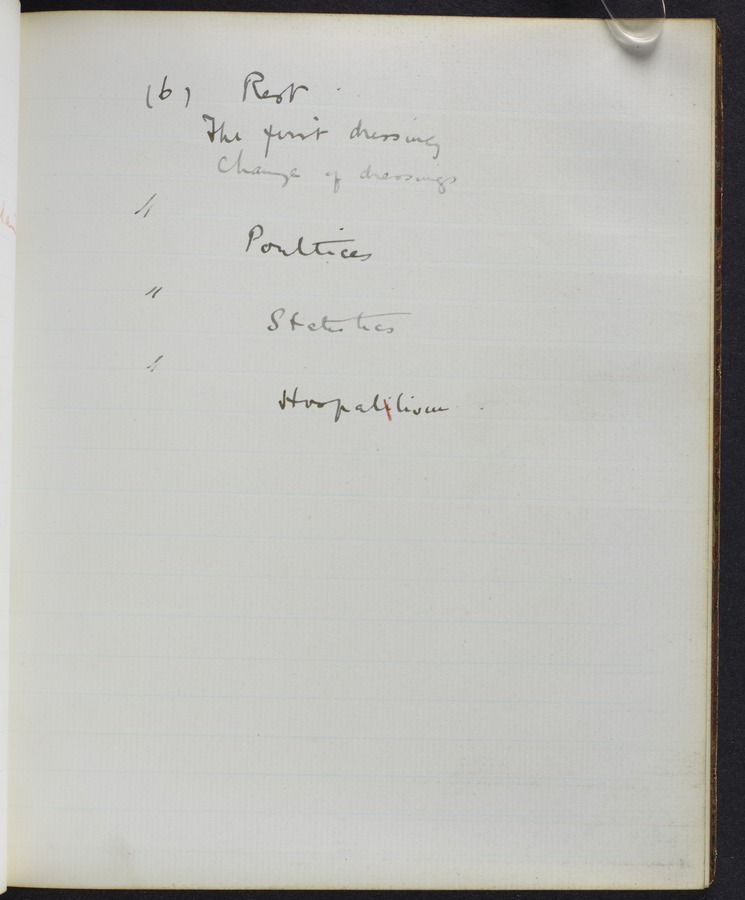 (b) Rest
The first dressing
Change of dressings
"
Poultices
"
Statistics
"
Hospalitism